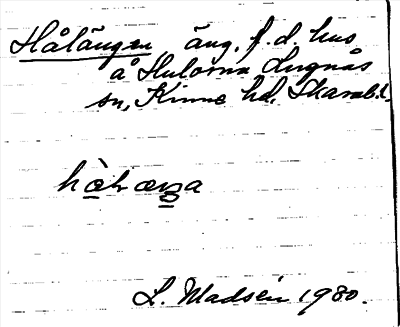 Hålängen äng, f.d. hus
å Hulorna Lugnås
sn, Kinne hd, Skarab.l.
L. Madsén 1980.